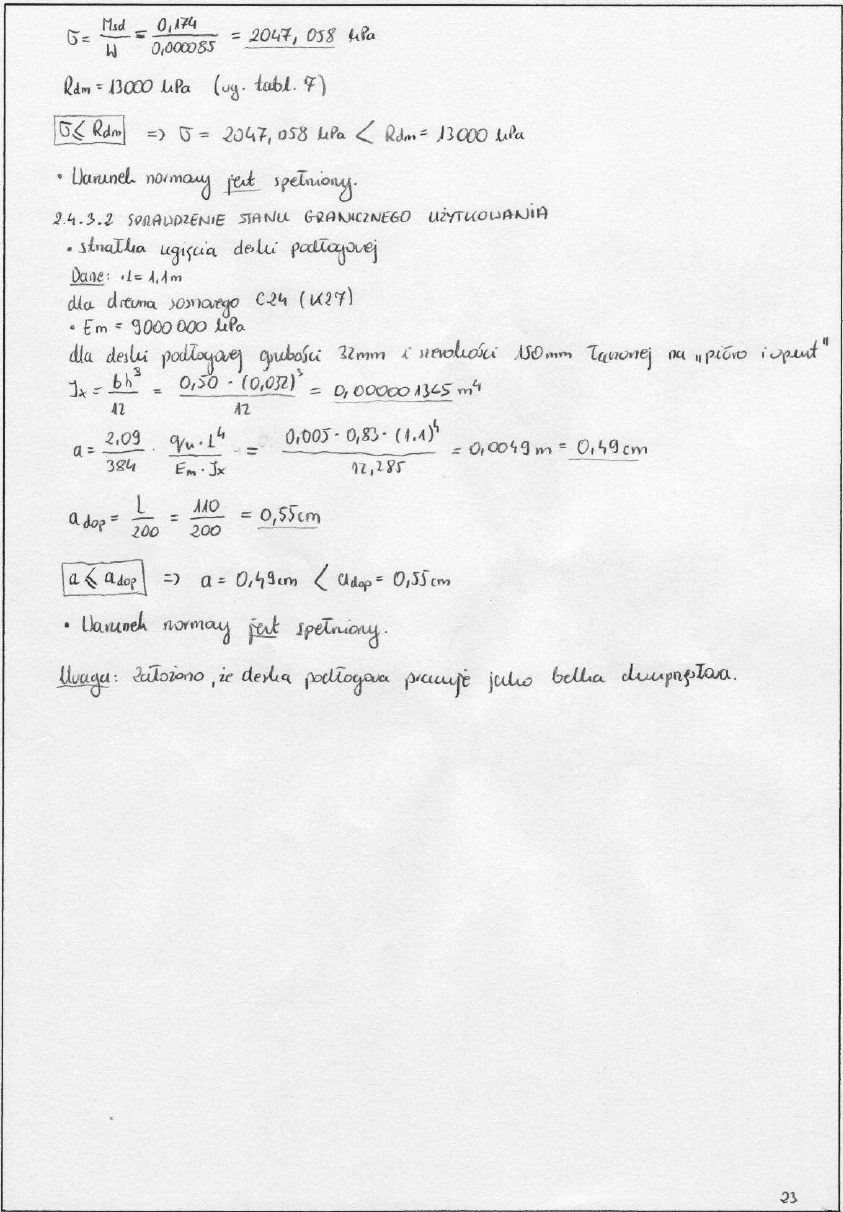 σ = Msd/W = 0,174/0,000085 = 2047,058 kPa
Rdm = 13000 kPa (wg. tabl. 7)
σ ≤ Rdm => σ = 2047,058 kPa < Rdm = 13000 kPa
• Warunek normowy jest spełniony.
2.4.3.2 SPRAWDZENIE STANU GRANICZNEGO UŻYTKOWANIA
• strzałka ugięcia deski podłogowej
Dane: • l = 1,1m
dla drewna sosnowego C24 (K27)
• Em = 9000 000 kPa
dla deski podłogowej grubości 32mm i szerokości 150mm łączonej na "pióro i wpust"
Jx = bh³/12 = 0,50 · (0,032)³/12 = 0,000001365 m⁴
a = 2,09/384 · qu · L⁴/Em · Jx = 0,005 · 0,83 · (1.1)⁴/12,285 = 0,0049 m = 0,49 cm
a dop = L/200 = 110/200 = 0,55cm
a ≤ a dop => a = 0,49cm < a dop = 0,55cm
• Warunek normowy jest spełniony.
Uwaga: Założono, że deska podłogowa pracuje jako belka dwuprzęsłowa.
23